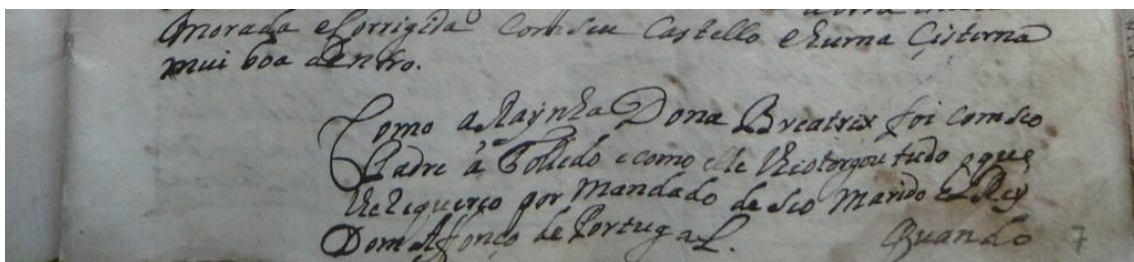 morada e Corrigida Com seu Castello e huma Cisterna
mui boa dentro.
Como a Raynha Dona Breatrix foi com seo
Padre à Tolledo e como elle lhe otorgou tudo o que
lhe Requereo por Mandado de seo Marido El Rey
Dom Affonço de Portugal. Quando 7